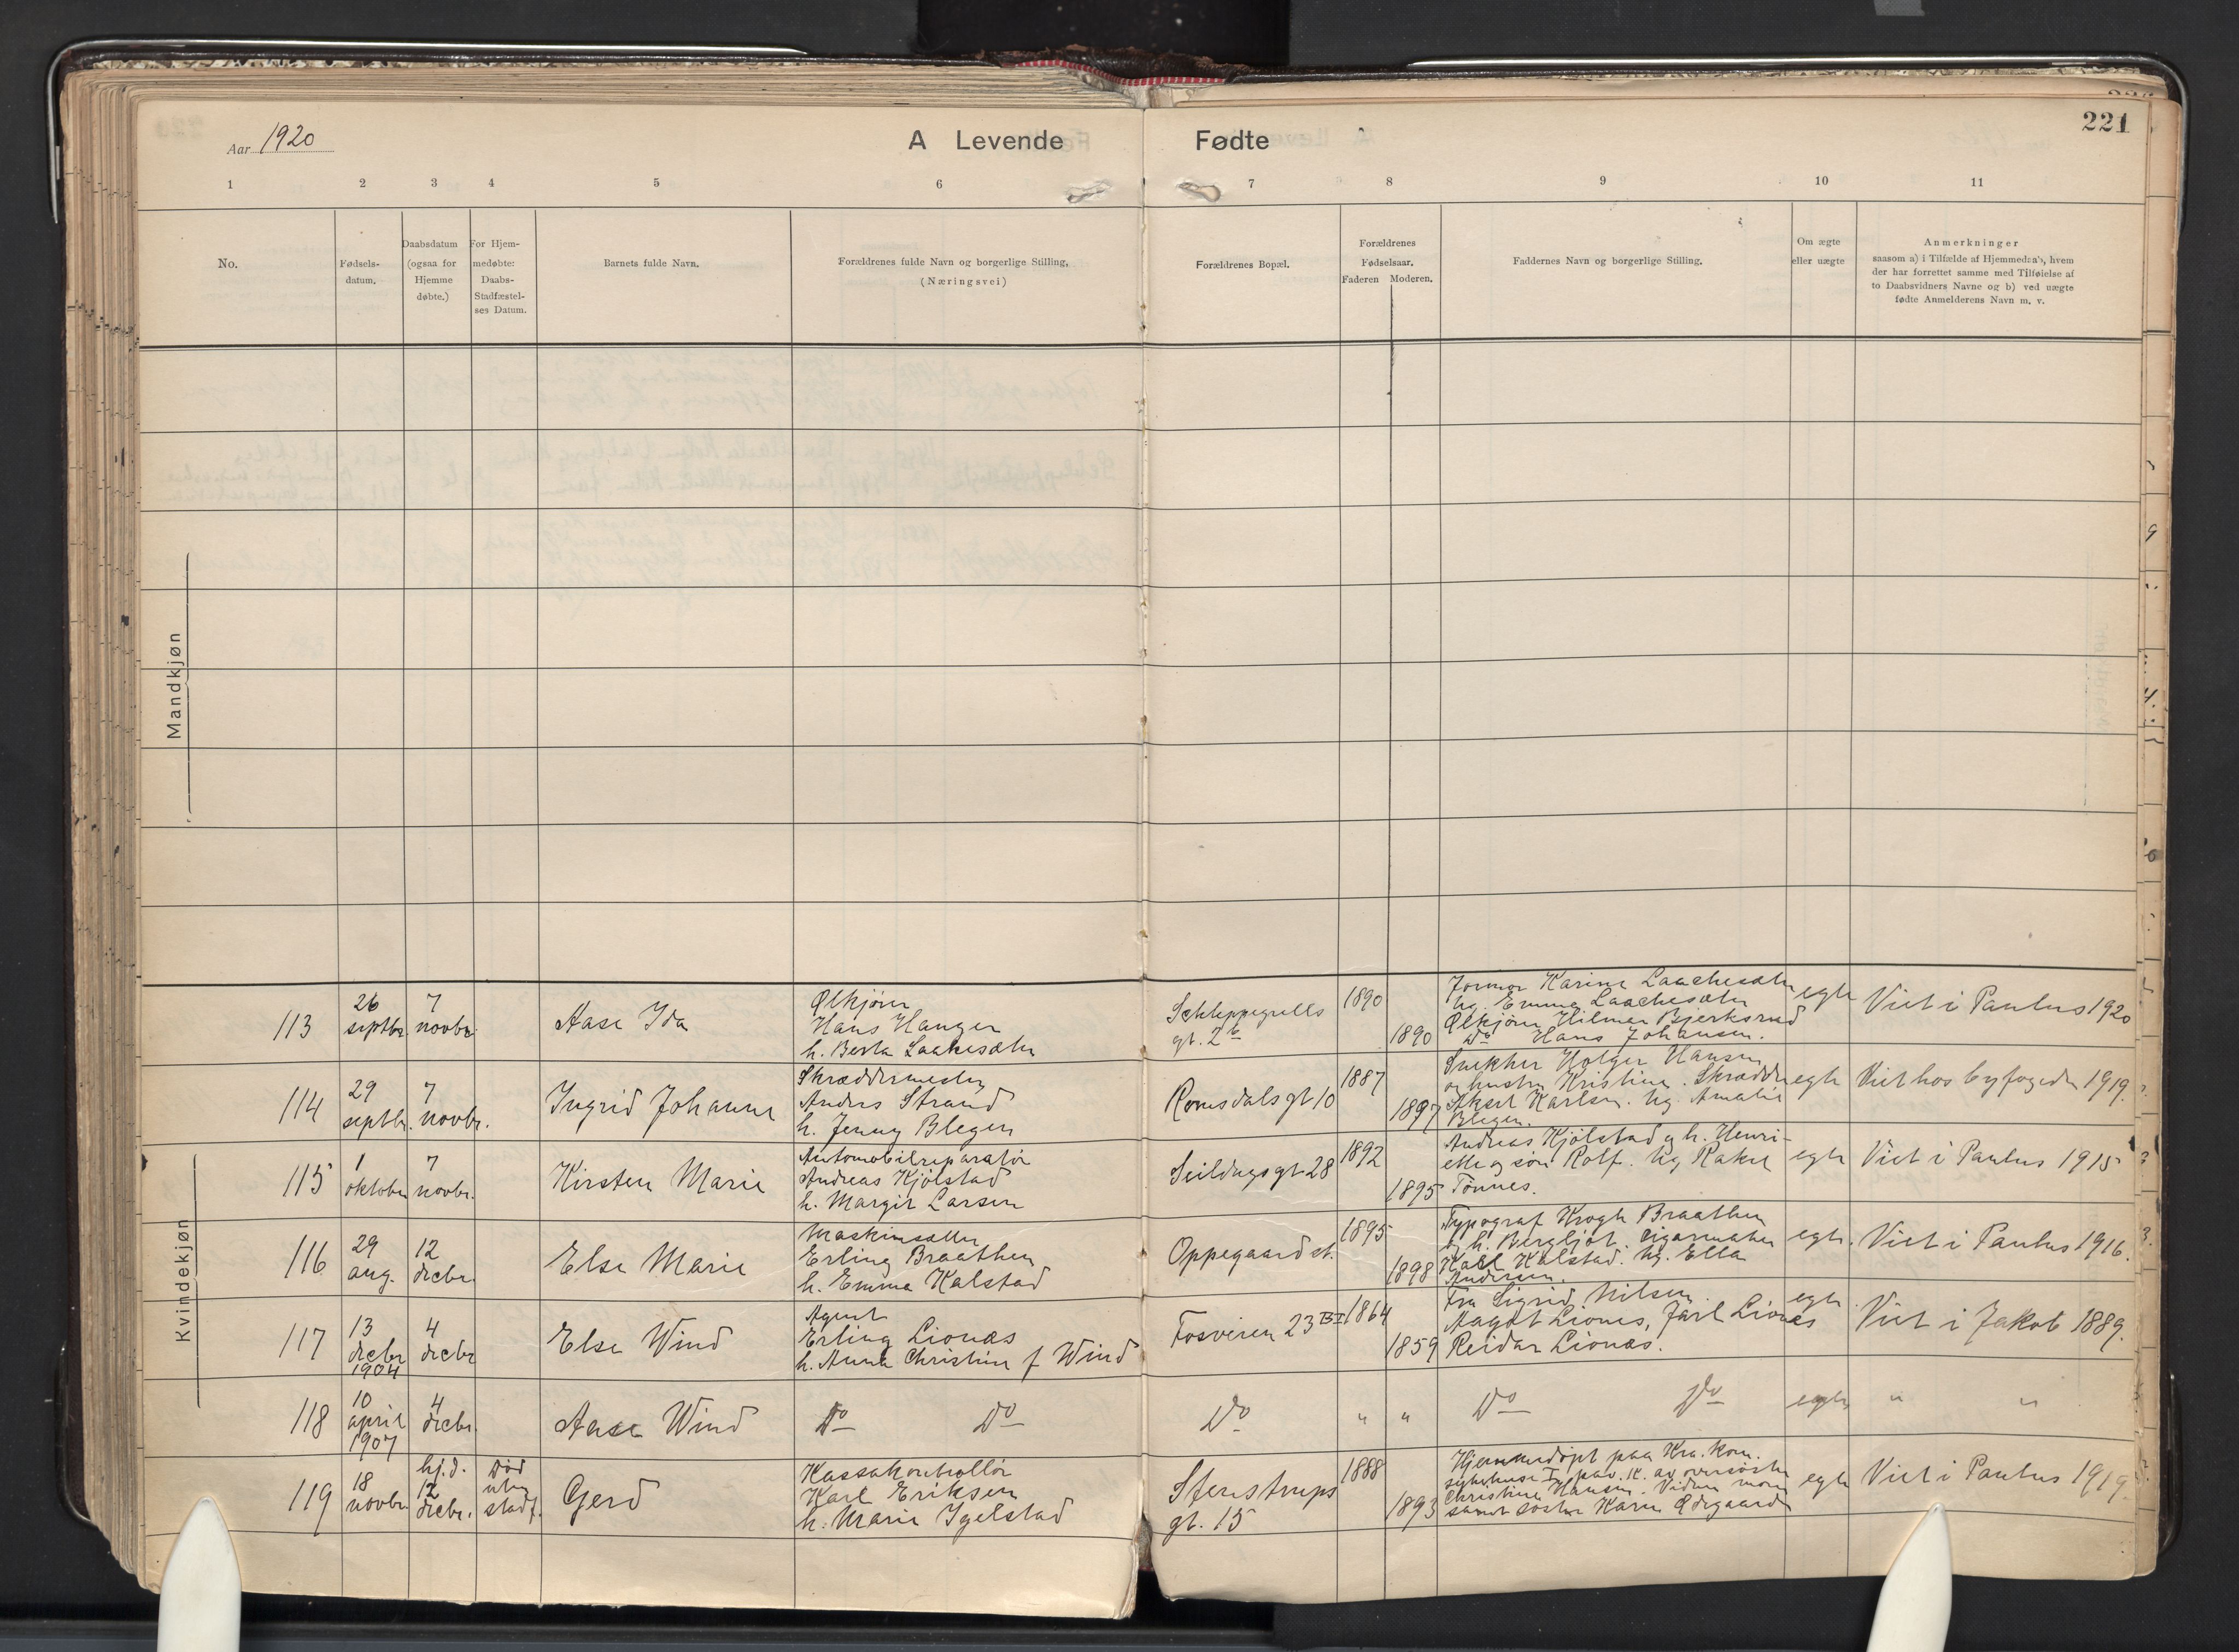 Aar 1920
A Levende
Fødte
221
1
2
3
4
5
6
7
8
9
10
11
No.
Fødsels-
datum.
Daabsdatum
(ogsaa for
Hjemme
døbte.)
For Hjem-
medøbte:
Daabs-
Stadfæstel-
ses Datum.
Barnets fulde Navn.
Forældrenes fulde Navn og borgerlige Stilling.
(Næringsvei)
Forældrenes Bopæl.
Forældrenes
Fødselsaar.
Faderen Moderen.
Faddernes Navn og borgerlige Stilling.
Om ægte
eller uægte
Anmerkninger
saasom a) i Tilfælde af Hjemmedaa's, hvem
der har forrettet samme med Tilføielse af
to Daabsvidners Navne og b) ved uægte
fødte Anmelderens Navn m. v.
Mandkjøn
Kvindekjøn
113
26
septbr.
7
novbr.
Aase Ida
Ølkjører
Hans Hanger
h. Berta Laakesæter
Schleppegrells
gt. 2b
1890
1890
Formor Karine Laachesæter
Ug. Emma Laachesæter
Ølkjører Hilmer Bjerksrud
Do Hans Johansen.
egte
Viet i Paulus 1920
114
29
septbr.
7
novbr.
Ingrid Johanne
Skræddermester
Anders Strand
h. Jenny Blegen
Romsdals gt 10
1887
1897
Snekker Holger Hansen
og hustru Kristine. Skrædder
Aksel Karlsen. Ug. Amalie
Blegen.
egte
Viet hos byfogden 1919.
115
1
oktober
7
novbr.
Kirsten Marie
Automobilreparatør
Andreas Kjölstad
h. Margit Larsen
Seildugsgt 28
1892
1895
Andreas Kjölstad og h. Henri-
ette og søn Rolf. Ug. Rakel
Tønnes.
egte
Viet i Paulus 1915
116
29
aug.
12
decbr.
Else Marie
Maskinsætter
Erling Braathen
h. Emma Kalstad
Oppegaard st.
1895
1898
Typograf Krogh Braathen
og h. Bergljot. Cigarmaker
Karl Kalstad. Ug. Ella
Andersen.
egte.
Viet i Paulus 1916.
117
13
decbr
1904
4
decbr
Else Wind
Agent
Erling Lionæs
h. Anna Christine f Wind
Fosveien 23 B I
1864
1859
Fru Sigrid Nilsen
Aagot Lionæs, Jarl Lionæs
Reidar Lionæs.
egte
Viet i Jakob 1889.
118
10
april
1907
4
decbr.
Aase Wind
Do Do
Do
" "
Do Do
egte
" "
119
18
novbr.
hj.d.
12
decbr.
Død
uten
stadf.
Gerd
Kassakontrollør
Karl Eriksen
h. Marie Igelstad
Stenstrups
gt. 15
1888
1893
Hjemmedøpt paa Kra. kom.
sykehuse I pav. K. av oversøster
Christine Hansen. Vidner mor
samt søster Karen Ødegaarden
egte
Viet i Paulus 1919.